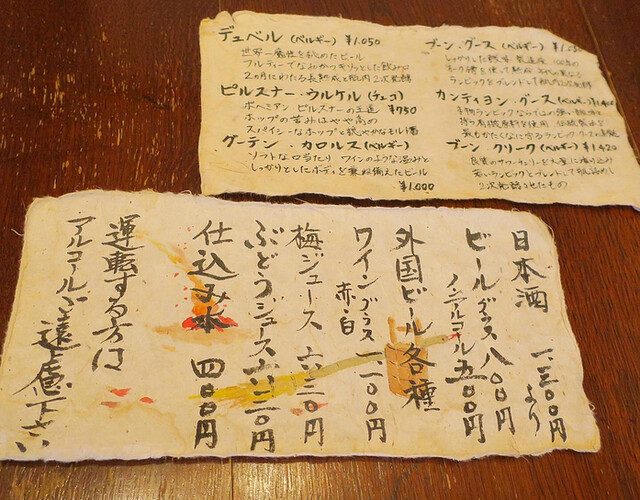 デュベル (ベルギー) ¥1.050
世界一魔性を秘めたビール
フルティーでなめらか
2ヵ月にわたる長熟成と瓶内2次発酵
ピルスナー・ウルケル (チェコ)
ボヘミアン ピルスナーの王道 ¥950
ホップの苦みはやや高め
スパイシーなホップと穏やかなモルト香
グーデン・カロルス (ベルギー)
ソフトな口当たり ワインのような温みと
しっかりとしたボディを兼ね備えたビール
¥1.000
ブーン・グース (ベルギー)
ランビックをブレンドして
カンティヨン・グース (ベルギー)
ブーン クリーク (ベルギー) ¥1.420
若いランビックとブレンドして
2次発酵させたもの
日本酒 一、三〇〇円より
ビール グラス 八〇〇円
ノンアルコール 五〇〇円
外国ビール各種
ワイン グラス 赤・白 一一〇〇円
梅ジュース 六三〇円
ぶどうジュース 六三〇円
仕込み水 四〇〇円
運転する方は
アルコールご遠慮下さい